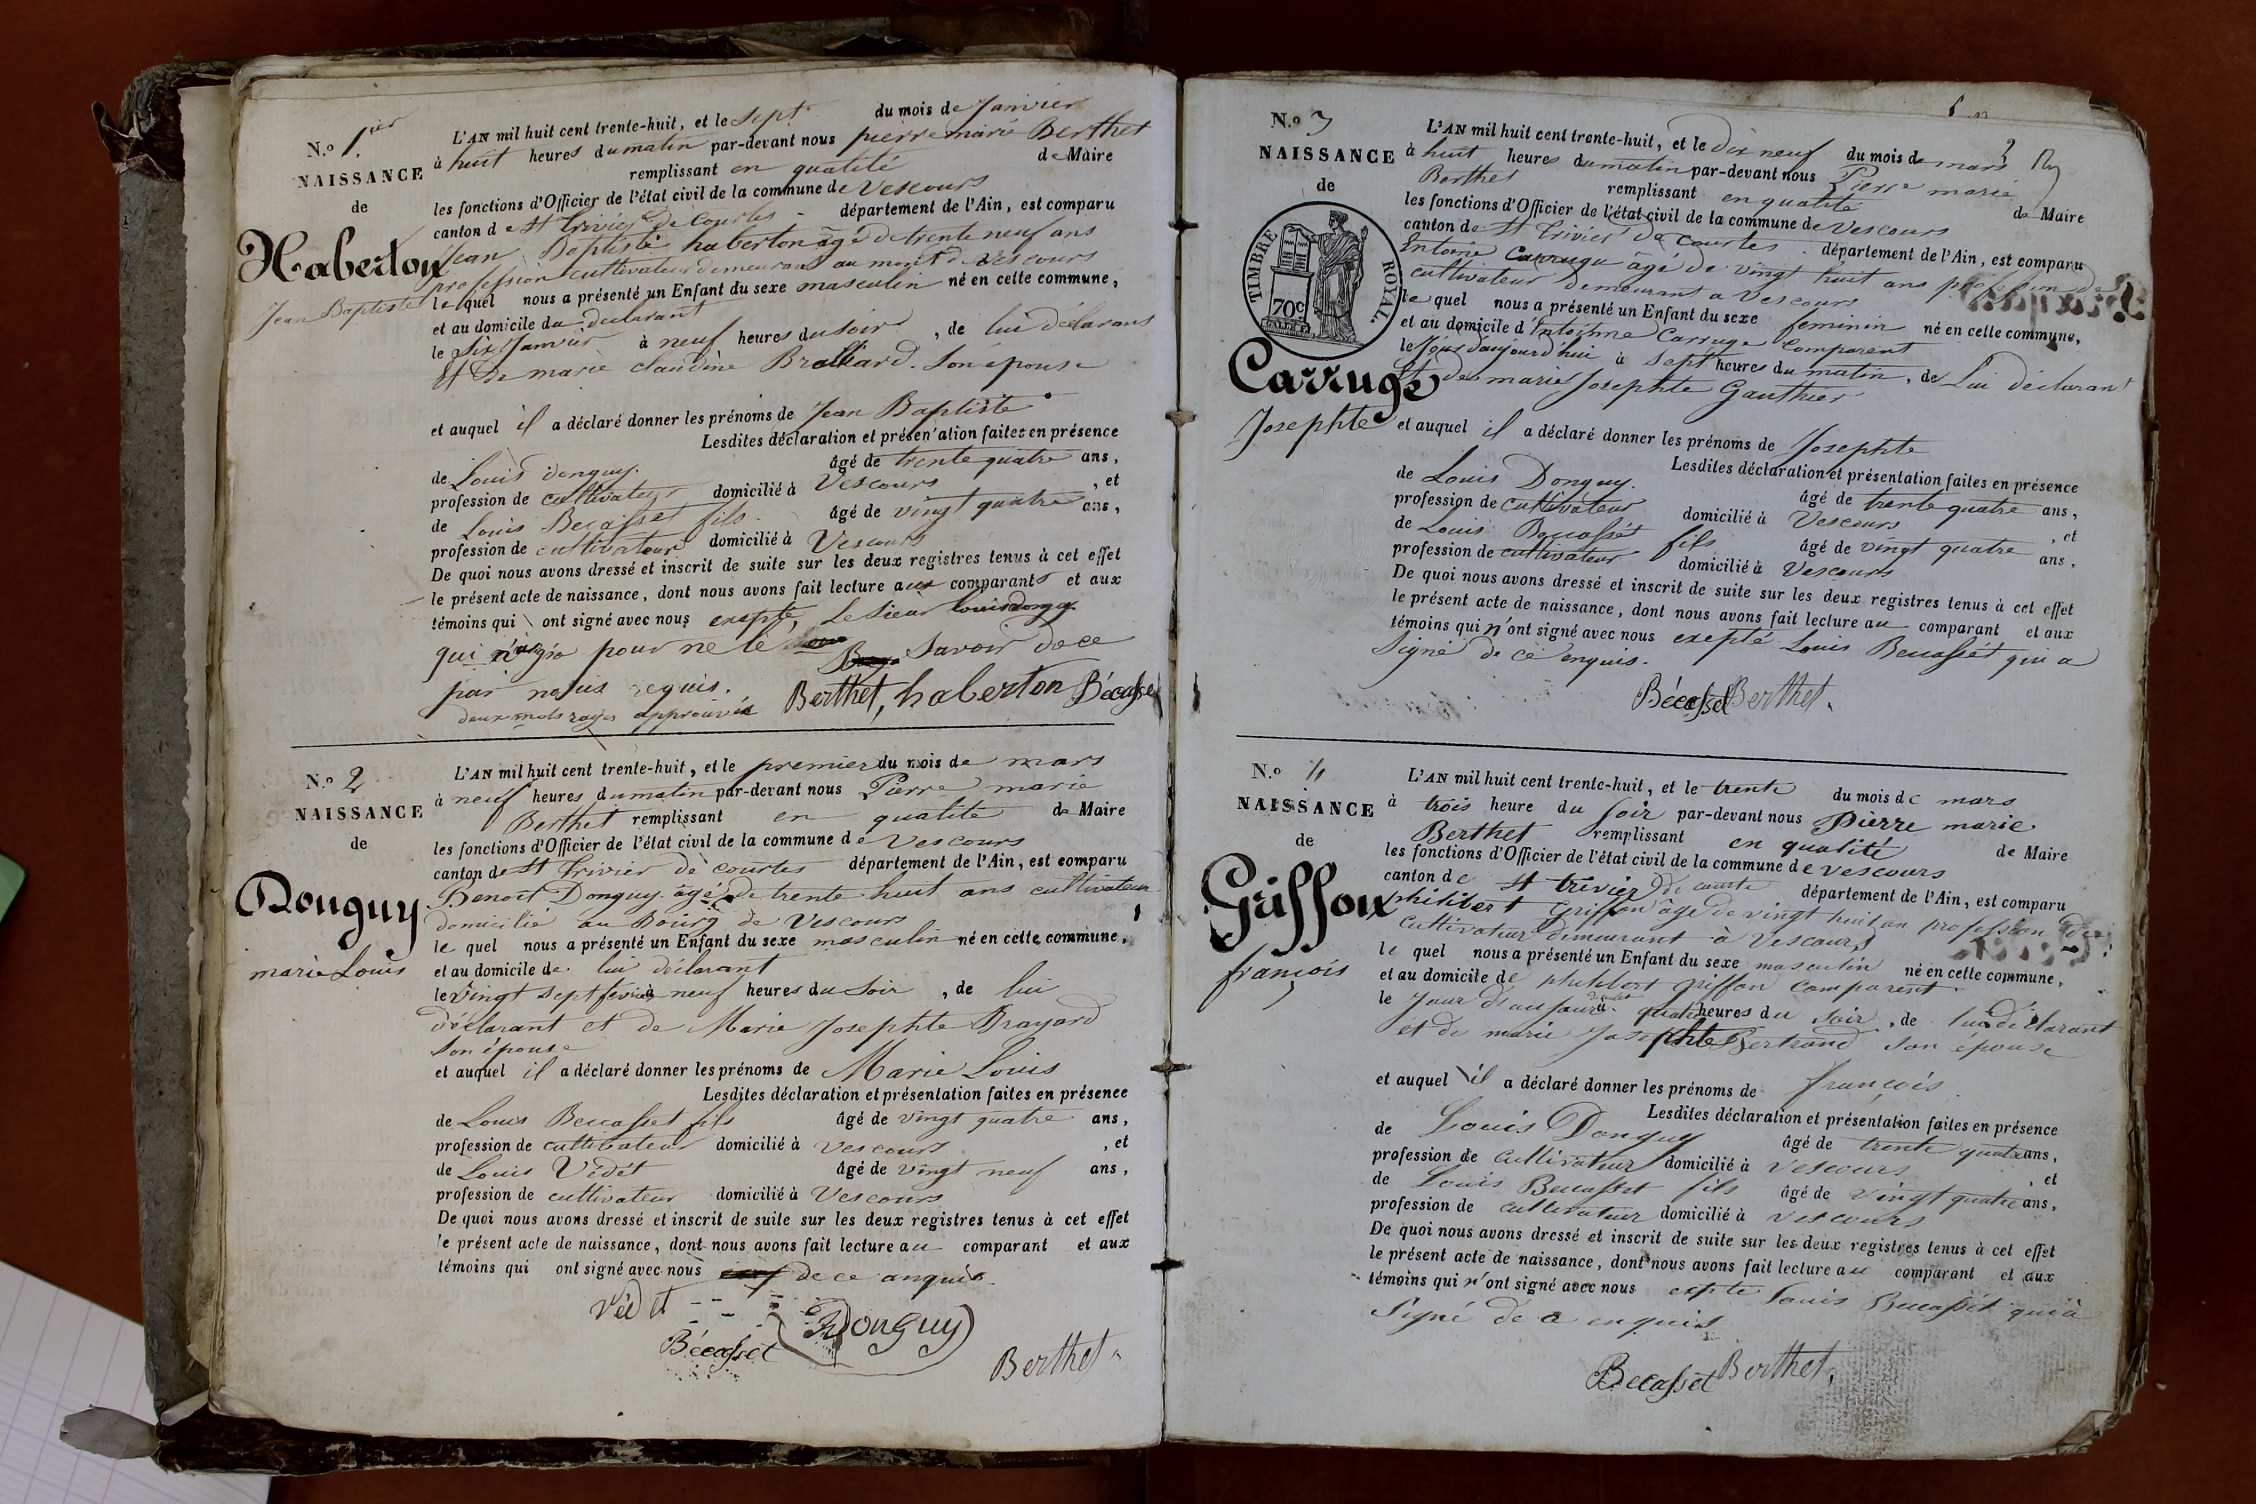 N.o 1ier
NAISSANCE
de
Haberton
Jean Baptiste
L'AN mil huit cent trente-huit, et le sept du mois de Janvier
à huit heures du matin par-devant nous pierre marie Berthet
remplissant en qualité de Maire
les fonctions d'Officier de l'état civil de la commune de Vescours
canton de St trivier de Courtes département de l'Ain, est comparu
Jean Baptiste haberton âgé de trente neuf ans
profession cultivateur demeurant au mont de Vescours
le quel nous a présenté un Enfant du sexe masculin né en cette commune,
et au domicile du declarant
le six Janvier à neuf heures du soir, de lui déclarant
et de marie claudine Braillard son épouse
et auquel il a déclaré donner les prénoms de Jean Baptiste
Lesdites déclaration et présentation faites en présence
de Louis donguy âgé de trente quatre ans,
profession de cultivateur domicilié à Vescours, et
de Louis Becasset fils âgé de vingt quatre ans,
profession de cultivateur domicilié à Vescours
De quoi nous avons dressé et inscrit de suite sur les deux registres tenus à cet effet
le présent acte de naissance, dont nous avons fait lecture aux comparants et aux
témoins qui ont signé avec nous exepté, le sieur louis donguy
qui pour ne le savoir de ce
par nous requis.
deux mots rayés approuvés Berthet, haberton Bécasset
N.o 2
NAISSANCE
de
Donguy
marie Louis
L'AN mil huit cent trente-huit, et le premier du mois de mars
à neuf heures du matin par-devant nous Pierre marie
Berthet remplissant en qualité de Maire
les fonctions d'Officier de l'état civil de la commune de Vescours
canton de St trivier de courtes département de l'Ain, est comparu
Benoit Donguy âgé de trente huit ans cultivateur
domicilié au Bourg de Vescours
le quel nous a présenté un Enfant du sexe masculin né en cette commune,
et au domicile de lui déclarant
le vingt sept fevrier à neuf heures du soir, de lui
déclarant et de Marie Josephte Brayard
son épouse
et auquel il a déclaré donner les prénoms de Marie Louis
Lesdites déclaration et présentation faites en présence
de Louis Beccasset fils âgé de vingt quatre ans,
profession de cultivateur domicilié à Vescours, et
de Louis Vèdet âgé de vingt neuf ans,
profession de cultivateur domicilié à Vescours
De quoi nous avons dressé et inscrit de suite sur les deux registres tenus à cet effet
le présent acte de naissance, dont nous avons fait lecture au comparant et aux
témoins qui ont signé avec nous de ce anquis
vèdet
Bécasset Donguy
Berthet
N.o 3
NAISSANCE
de
TIMBRE ROYAL.
70c
Carruge
Josephte
L'AN mil huit cent trente-huit, et le dix neuf du mois de mars
à huit heures du matin par-devant nous Pierre marie
Berthet remplissant en qualité de Maire
les fonctions d'Officier de l'état civil de la commune de Vescours
canton de St trivier de courtes département de l'Ain, est comparu
Entoine Carruge âgé de vingt huit ans profession de
cultivateur demeurant a Vescours
le quel nous a présenté un Enfant du sexe feminin né en cette commune,
et au domicile d'Entoinne Carruge comparent
le Jour d'aujourd'hui à sept heures du matin, de Lui déclarant
et de marie Josephte Gauthier
et auquel il a déclaré donner les prénoms de Josephte
Lesdites déclaration et présentation faites en présence
de Louis Donguy âgé de trente quatre ans,
profession de cultivateur domicilié à Vescours, et
de Louis Beccasset fils âgé de vingt quatre ans,
profession de cultivateur domicilié à Vescours
De quoi nous avons dressé et inscrit de suite sur les deux registres tenus à cet effet
le présent acte de naissance, dont nous avons fait lecture au comparant et aux
témoins qui n'ont signé avec nous exepté Louis Beccassét qui a
signé de ce enquis.
Bécasset Berthet
N.o 4
NAISSANCE
de
Griffon
françois
L'AN mil huit cent trente-huit, et le trente du mois de mars
à trois heure du soir par-devant nous Pierre marie
Berthet remplissant en qualité de Maire
les fonctions d'Officier de l'état civil de la commune de vescours
canton de St trivier de courte département de l'Ain, est comparu
philibert Griffon âgé de vingt huit an profession de
cultivateur demeurant à Vescours
le quel nous a présenté un Enfant du sexe masculin né en cette commune,
et au domicile de philibert griffon comparent
le Jour heures du soir, de lui déclarant
et de marie Josephte Bertrand son épouse
et auquel il a déclaré donner les prénoms de françois
Lesdites déclaration et présentation faites en présence
de Louis Donguy âgé de trente quatre ans,
profession de cultivateur domicilié à vescours, et
de Louis Beccasset fils âgé de vingt quatre ans,
profession de cultivateur domicilié à vescours
De quoi nous avons dressé et inscrit de suite sur les deux registres tenus à cet effet
le présent acte de naissance, dont nous avons fait lecture au comparant et aux
témoins qui n'ont signé avec nous exepte Louis Beccassét qui à
signé de ce enquis
Becassét Berthet